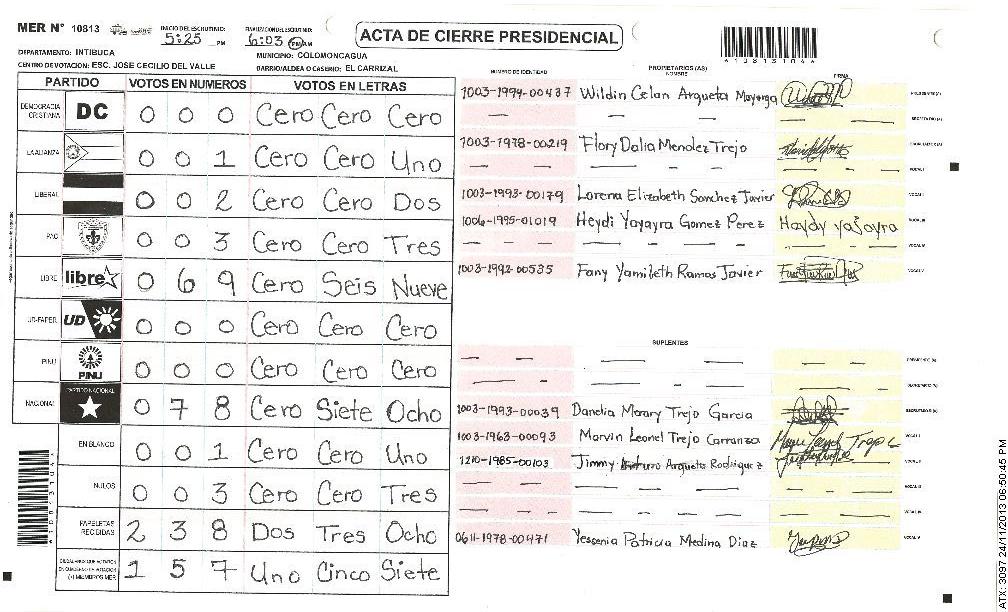 MER Nº 10813
INICIO DEL ESCRUTINIO: 5:25 PM
FINALIZACION ESCRUTINIO: 6:03 PM AM
ACTA DE CIERRE PRESIDENCIAL
DEPARTAMENTO: INTIBUCA
MUNICIPIO: COLOMONCAGUA
CENTRO DE VOTACION: ESC. JOSE CECILIO DEL VALLE
BARRIO/ALDEA O CASERIO: EL CARRIZAL
PARTIDO VOTOS EN NUMEROS VOTOS EN LETRAS
DEMOCRACIA CRISTIANA DC 0 0 0 Cero Cero Cero
LA ALIANZA 0 0 1 Cero Cero Uno
LIBERAL 0 0 2 Cero Cero Dos
PAC 0 0 3 Cero Cero Tres
LIBRE libre 0 6 9 Cero Seis Nueve
UD-FAPER UD 0 0 0 Cero Cero Cero
PINU PINU 0 0 0 Cero Cero Cero
NACIONAL PARTIDO NACIONAL 0 7 8 Cero Siete Ocho
EN BLANCO 0 0 1 Cero Cero Uno
NULOS 0 0 3 Cero Cero Tres
PAPELETAS RECIBIDAS 2 3 8 Dos Tres Ocho
CIUDADANOS QUE VOTARON EN CUADERNO DE VOTACION (+) MIEMBROS MER 1 5 7 Uno Cinco Siete
NUMERO DE IDENTIDAD PROPIETARIOS (AS) NOMBRE FIRMA
1003-1994-00437 Wildin Celan Argueta Mayorga PRESIDENTE (A)
SECRETARIO (A)
1003-1978-00219 Flory Dalia Mendez Trejo ESCRUTADOR (A)
VOCAL I
1003-1993-00179 Lorena Elizabeth Sanchez Javier VOCAL II
1006-1995-01019 Heydi Yayayra Gomez Perez Haydy yajayra VOCAL III
VOCAL IV
1003-1992-00535 Fany Yamileth Ramos Javier VOCAL V
SUPLENTES
PRESIDENTE (A)
SECRETARIO (A)
1003-1993-00039 Danelia Morary Trejo Garcia ESCRUTADOR (A)
1003-1963-00093 Marvin Leonel Trejo Carranza VOCAL I
1210-1985-00103 Jimmy Arturo Argueta Rodriguez VOCAL II
VOCAL III
VOCAL IV
0611-1978-00471 Yessenia Patricia Medina Diaz VOCAL V
ATX: 3097 24/11/2013 06:50:45 PM